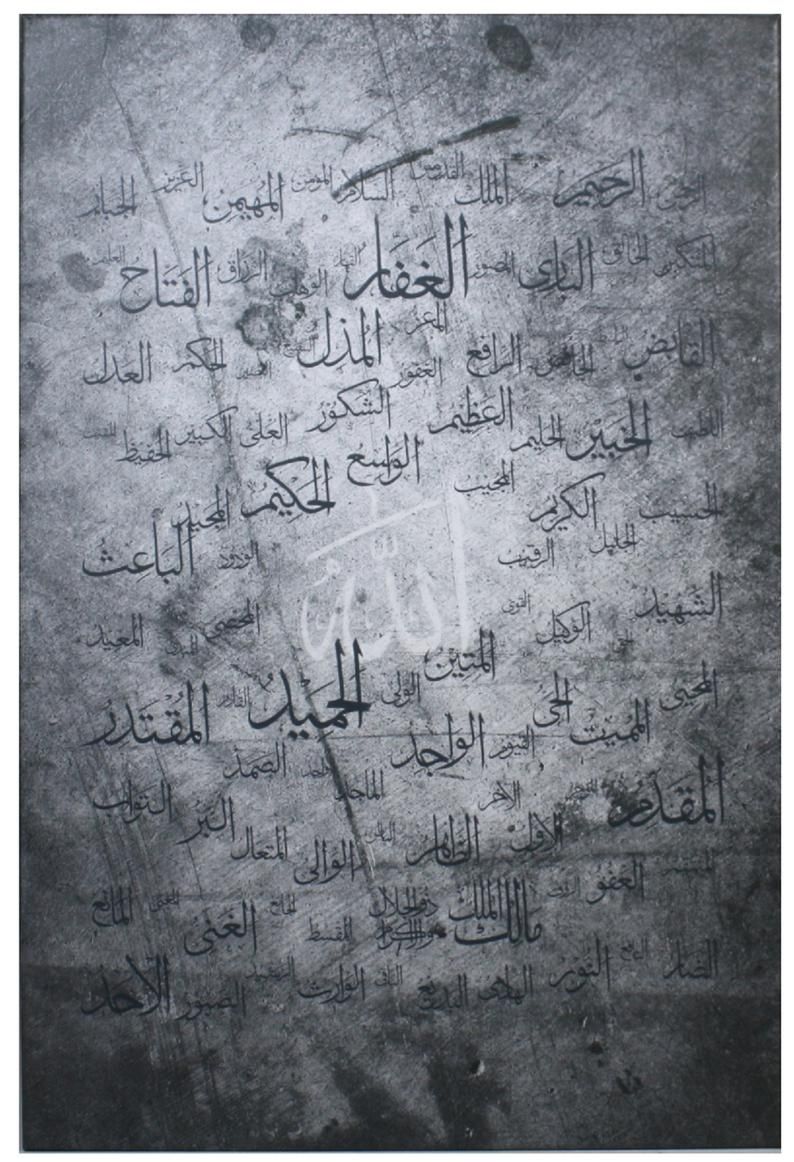 الرحمن الرحيم الملك القدوس السلام المؤمن المهيمن العزيز الجبار
المتكبر الخالق البارئ المصور الغفار القهار الوهاب الرزاق الفتاح العليم
القابض الخافض الرافع المعز المذل الحكم العدل
اللطيف الخبير الحليم العظيم الغفور الشكور العلي الكبير الحفيظ المقيت
الحسيب الجليل الكريم الرقيب المجيب الواسع الحكيم الودود المجيد الباعث
الشهيد الوكيل القوى المتين الولى الحميد المحصي المعيد
المحيى المميت الحى القيوم الواجد الماجد الواحد الصمد القادر المقتدر
المقدم الأخر الأول الظاهر الباطن الوالى المتعال البر التواب
العفو مالك الملك ذو الجلال والإكرام المقسط الجامع الغنى المغنى المانع
الضار النافع النور الهادى البديع الباقى الوارث الرشيد الصبور الأحد
الله